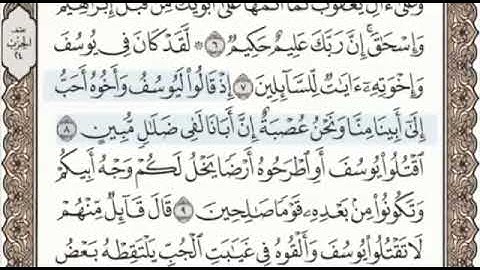 وَعَلَىٰٓ ءَالِ يَعۡقُوبَ كَمَآ أَتَمَّهَا عَلَىٰٓ أَبَوَيۡكَ مِن قَبۡلُ إِبۡرَٰهِيمَ
وَإِسۡحَٰقَۚ إِنَّ رَبَّكَ عَلِيمٌ حَكِيمٞ ٦ ۞ لَّقَدۡ كَانَ فِي يُوسُفَ
وَإِخۡوَتِهِۦٓ ءَايَٰتٞ لِّلسَّآئِلِينَ ٧ إِذۡ قَالُواْ لَيُوسُفُ وَأَخُوهُ أَحَبُّ
إِلَىٰٓ أَبِينَا مِنَّا وَنَحۡنُ عُصۡبَةٌ إِنَّ أَبَانَا لَفِي ضَلَٰلٖ مُّبِينٍ ٨
ٱقۡتُلُواْ يُوسُفَ أَوِ ٱطۡرَحُوهُ أَرۡضٗا يَخۡلُ لَكُمۡ وَجۡهُ أَبِيكُمۡ
وَتَكُونُواْ مِنۢ بَعۡدِهِۦ قَوۡمٗا صَٰلِحِينَ ٩ قَالَ قَآئِلٞ مِّنۡهُمۡ
لَا تَقۡتُلُواْ يُوسُفَ وَأَلۡقُوهُ فِي غَيَٰبَتِ ٱلۡجُبِّ يَلۡتَقِطۡهُ بَعۡضُ
نصف
الحزب
٢٤